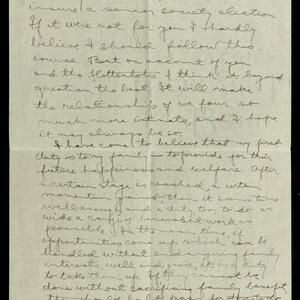 insure a senior society election
If it were not for you I hardly
believe I should follow this
course. But on account of you
and the Hottentots I think it beyond
question the best. It will make
the relationship of we four so
much more intimate, and I hope
it may always be so.
I have come to believe that my first
duty is to my family — to provide for their
future happiness and welfare. After
a certain stage is reached, a certain
momentum gained, then it
wide a range of benevolent work as
possible. In the mean time, if
opportunities come up which can be
handled without endangering family
interests, well and good, it is a duty
to take them up. If they must be
done without sacrificing family benefit,